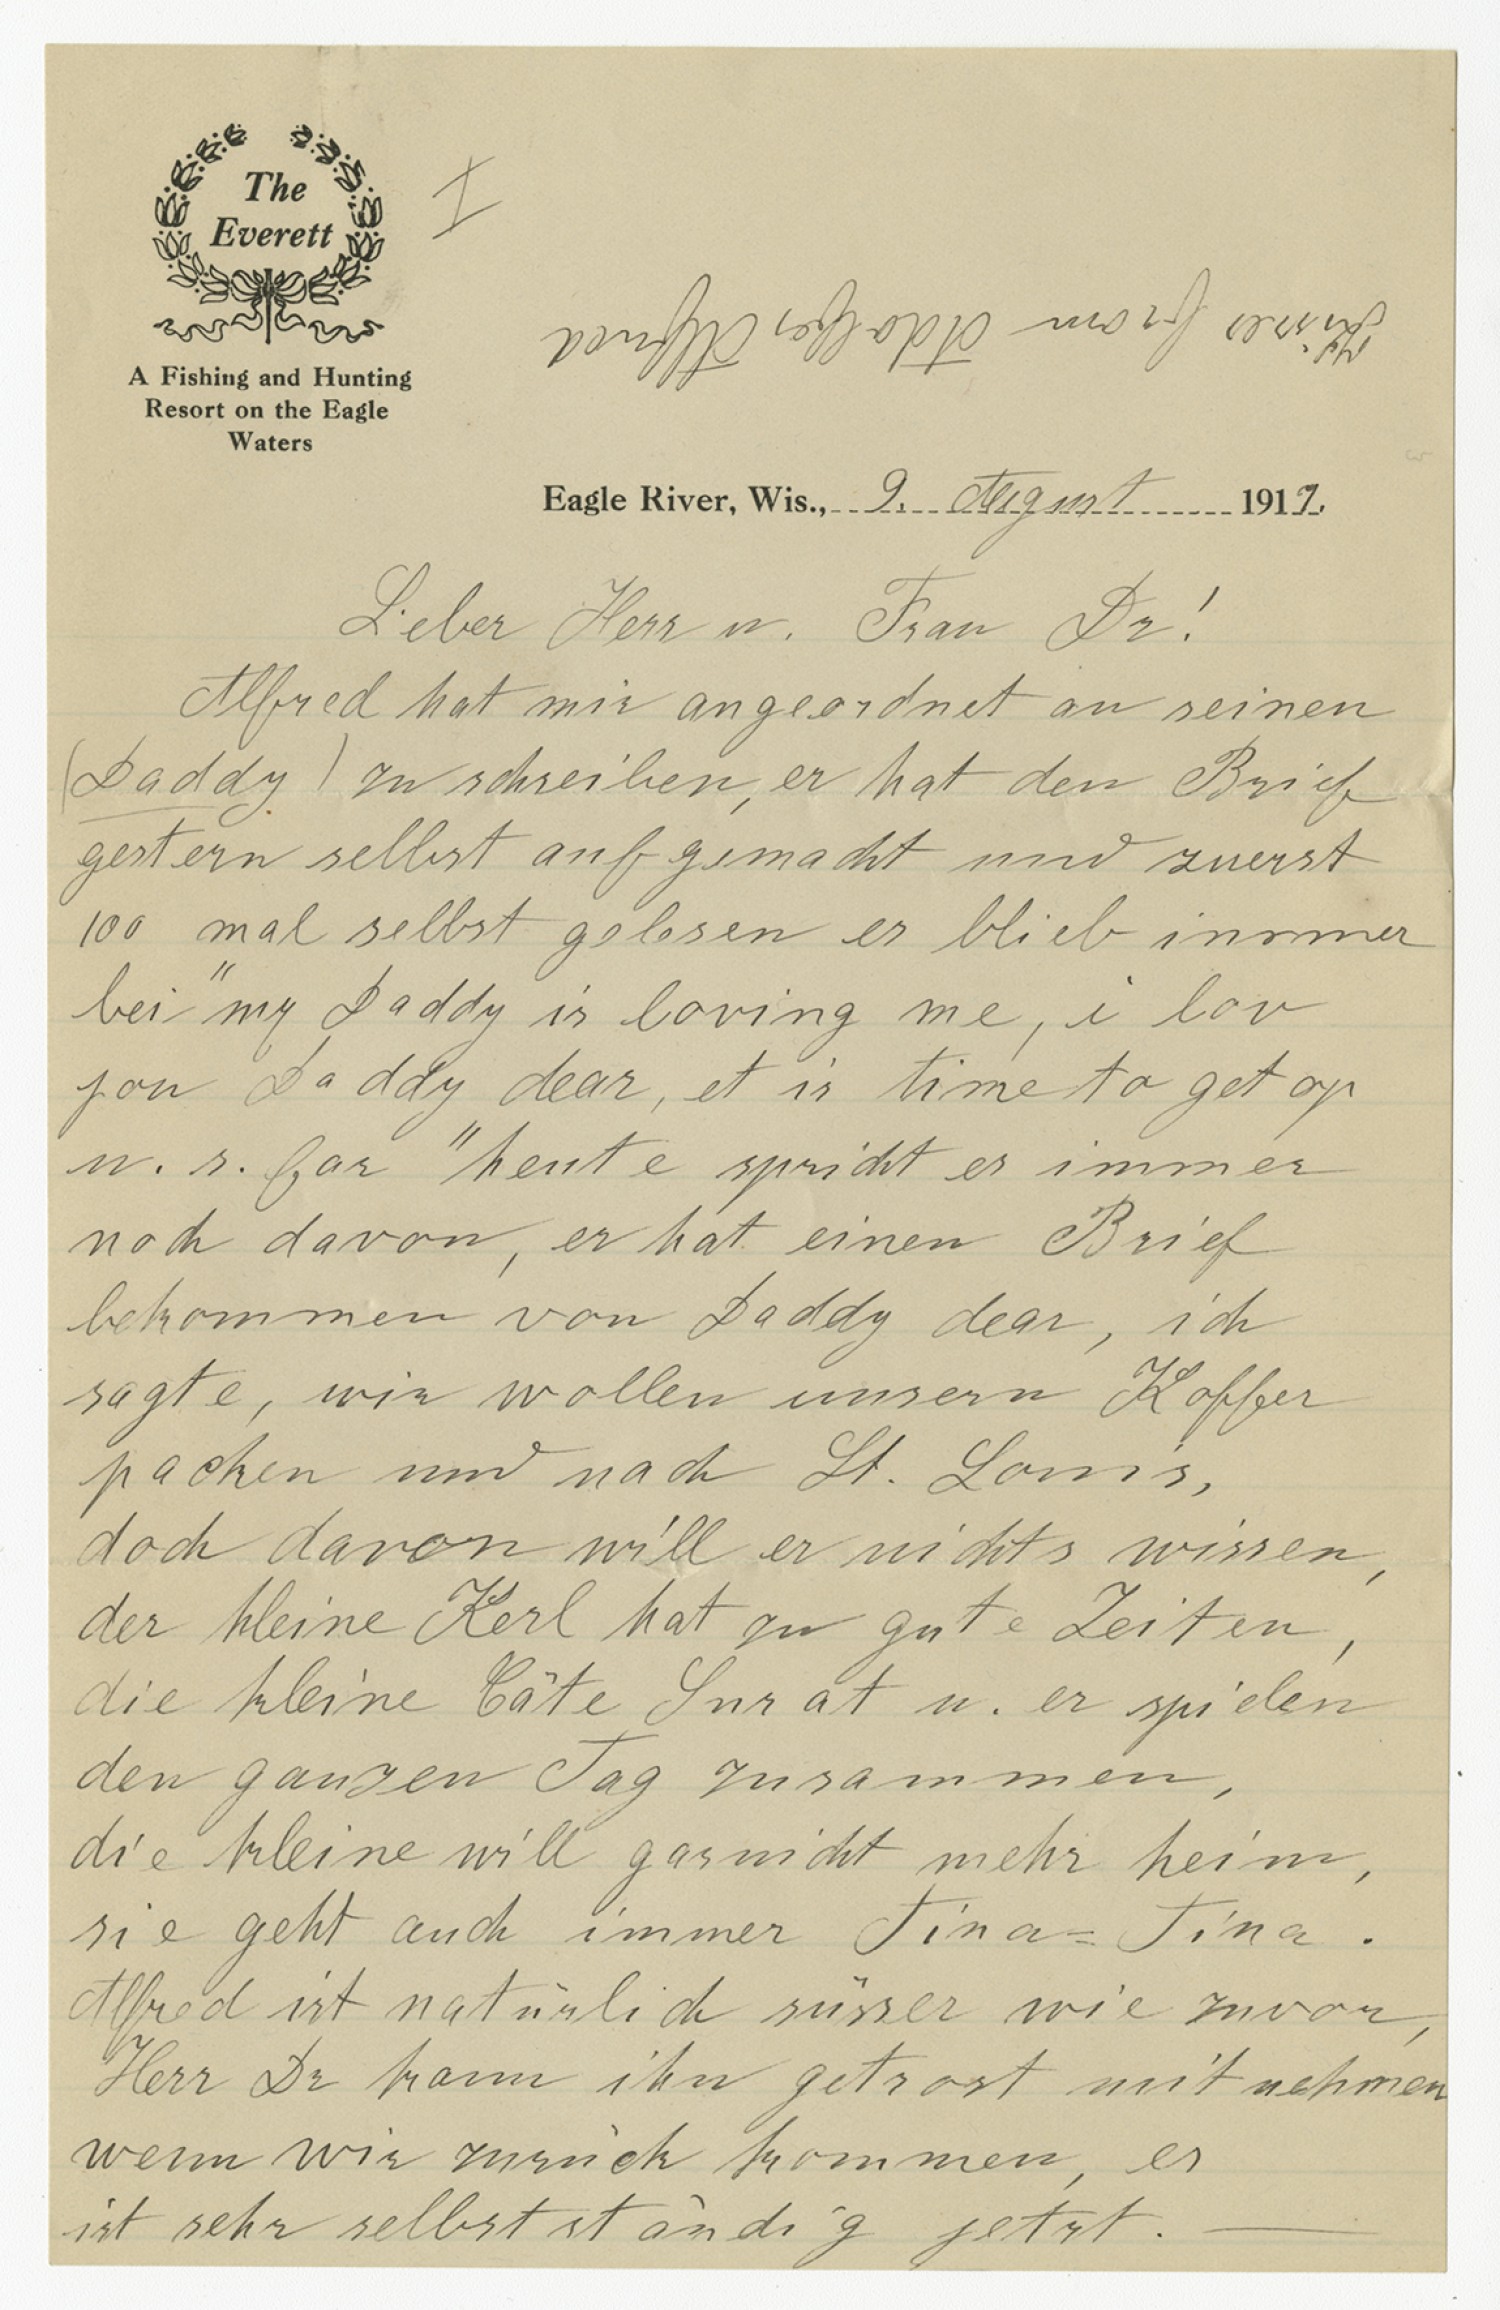 The
Everett
A Fishing and Hunting
Resort on the Eagle
Waters
I
Kisses from Adolfes Alfred
Eagle River, Wis., 9. August 1917.
Lieber Herr u. Frau Dr!
Alfred hat mir angeordnet an seinen
(Daddy) zu schreiben, er hat den Brief
gestern selbst aufgemacht und zuerst
100 mal selbst gelesen er blieb immer
bei "my Daddy is loving me, i lov
you Daddy dear, et is time to get op
u. s. far" heute spricht er immer
noch davon, er hat einen Brief
bekommen von Daddy dear, ich
sagte, wir wollen unsern Koffer
packen und nach St. Louis,
doch davon will er nichts wissen,
der kleine Kerl hat zu gute Zeiten,
die kleine Cäte Surat u. er spielen
den ganzen Tag zusammen,
die kleine will garnicht mehr heim,
sie geht auch immer Tina=Tina.
Alfred ist natürlich süsser wie zuvor,
Herr Dr kann ihn getrost mit nehmen
wenn wir zurück kommen, er
ist sehr selbstständig jetzt. —